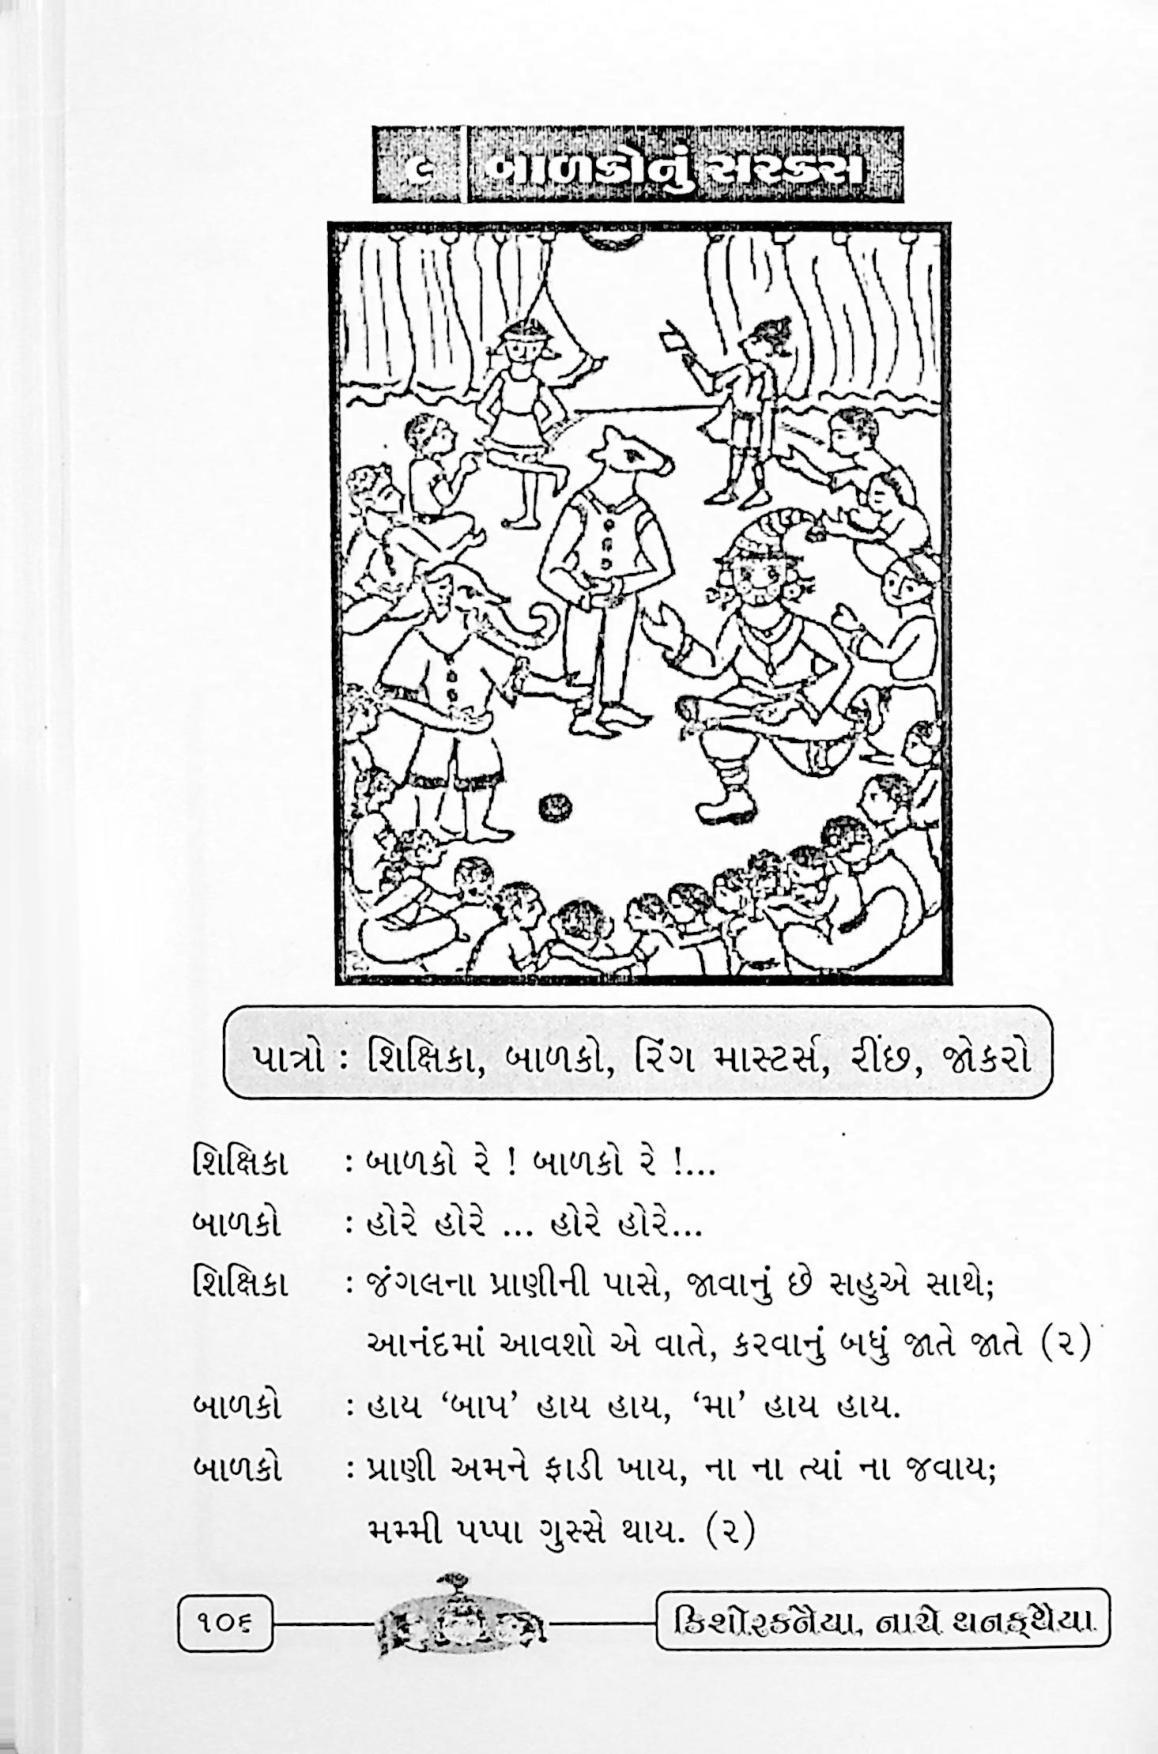 ૯ બાળકોનું સરકસ
પાત્રો : શિક્ષિકા, બાળકો, રિંગ માસ્ટર્સ, રીંછ, જોકરો
શિક્ષિકા : બાળકો રે ! બાળકો રે !...
બાળકો : હોરે હોરે ... હોરે હોરે...
શિક્ષિકા : જંગલના પ્રાણીની પાસે, જાવાનું છે સહુએ સાથે;
આનંદમાં આવશો એ વાતે, કરવાનું બધું જાતે જાતે (૨)
બાળકો : હાય ‘બાપ’ હાય હાય, ‘મા’ હાય હાય.
બાળકો : પ્રાણી અમને ફાડી ખાય, ના ના ત્યાં ના જવાય;
મમ્મી પપ્પા ગુસ્સે થાય. (૨)
૧૦૬
કિશોરકનૈયા, નાચે થનક્થૈયા